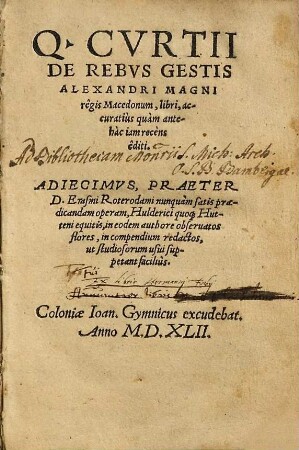 Q. CVRTII
DE REBVS GESTIS
ALEXANDRI MAGNI
régis Macedonum, libri, ac-
curatiùs quàm ante-
hàc iam recèns
êditi.
Ad Bibliothecam Monrii S. Mich: Arch.
O. S. B. Bambergae
ADIECIMVS, PRAETER
D. Erasmi Roterodami nunquàm satis præ-
dicandam operam, Hulderici quoq; Hut-
teni equitis, in eodem authore obseruatos
flores, in compendium redactos,
ut studiosorum usui sup-
petant faciliùs.
Ex libris
Coloniæ Ioan. Gymnicus excudebat.
Anno M.D.XLII.